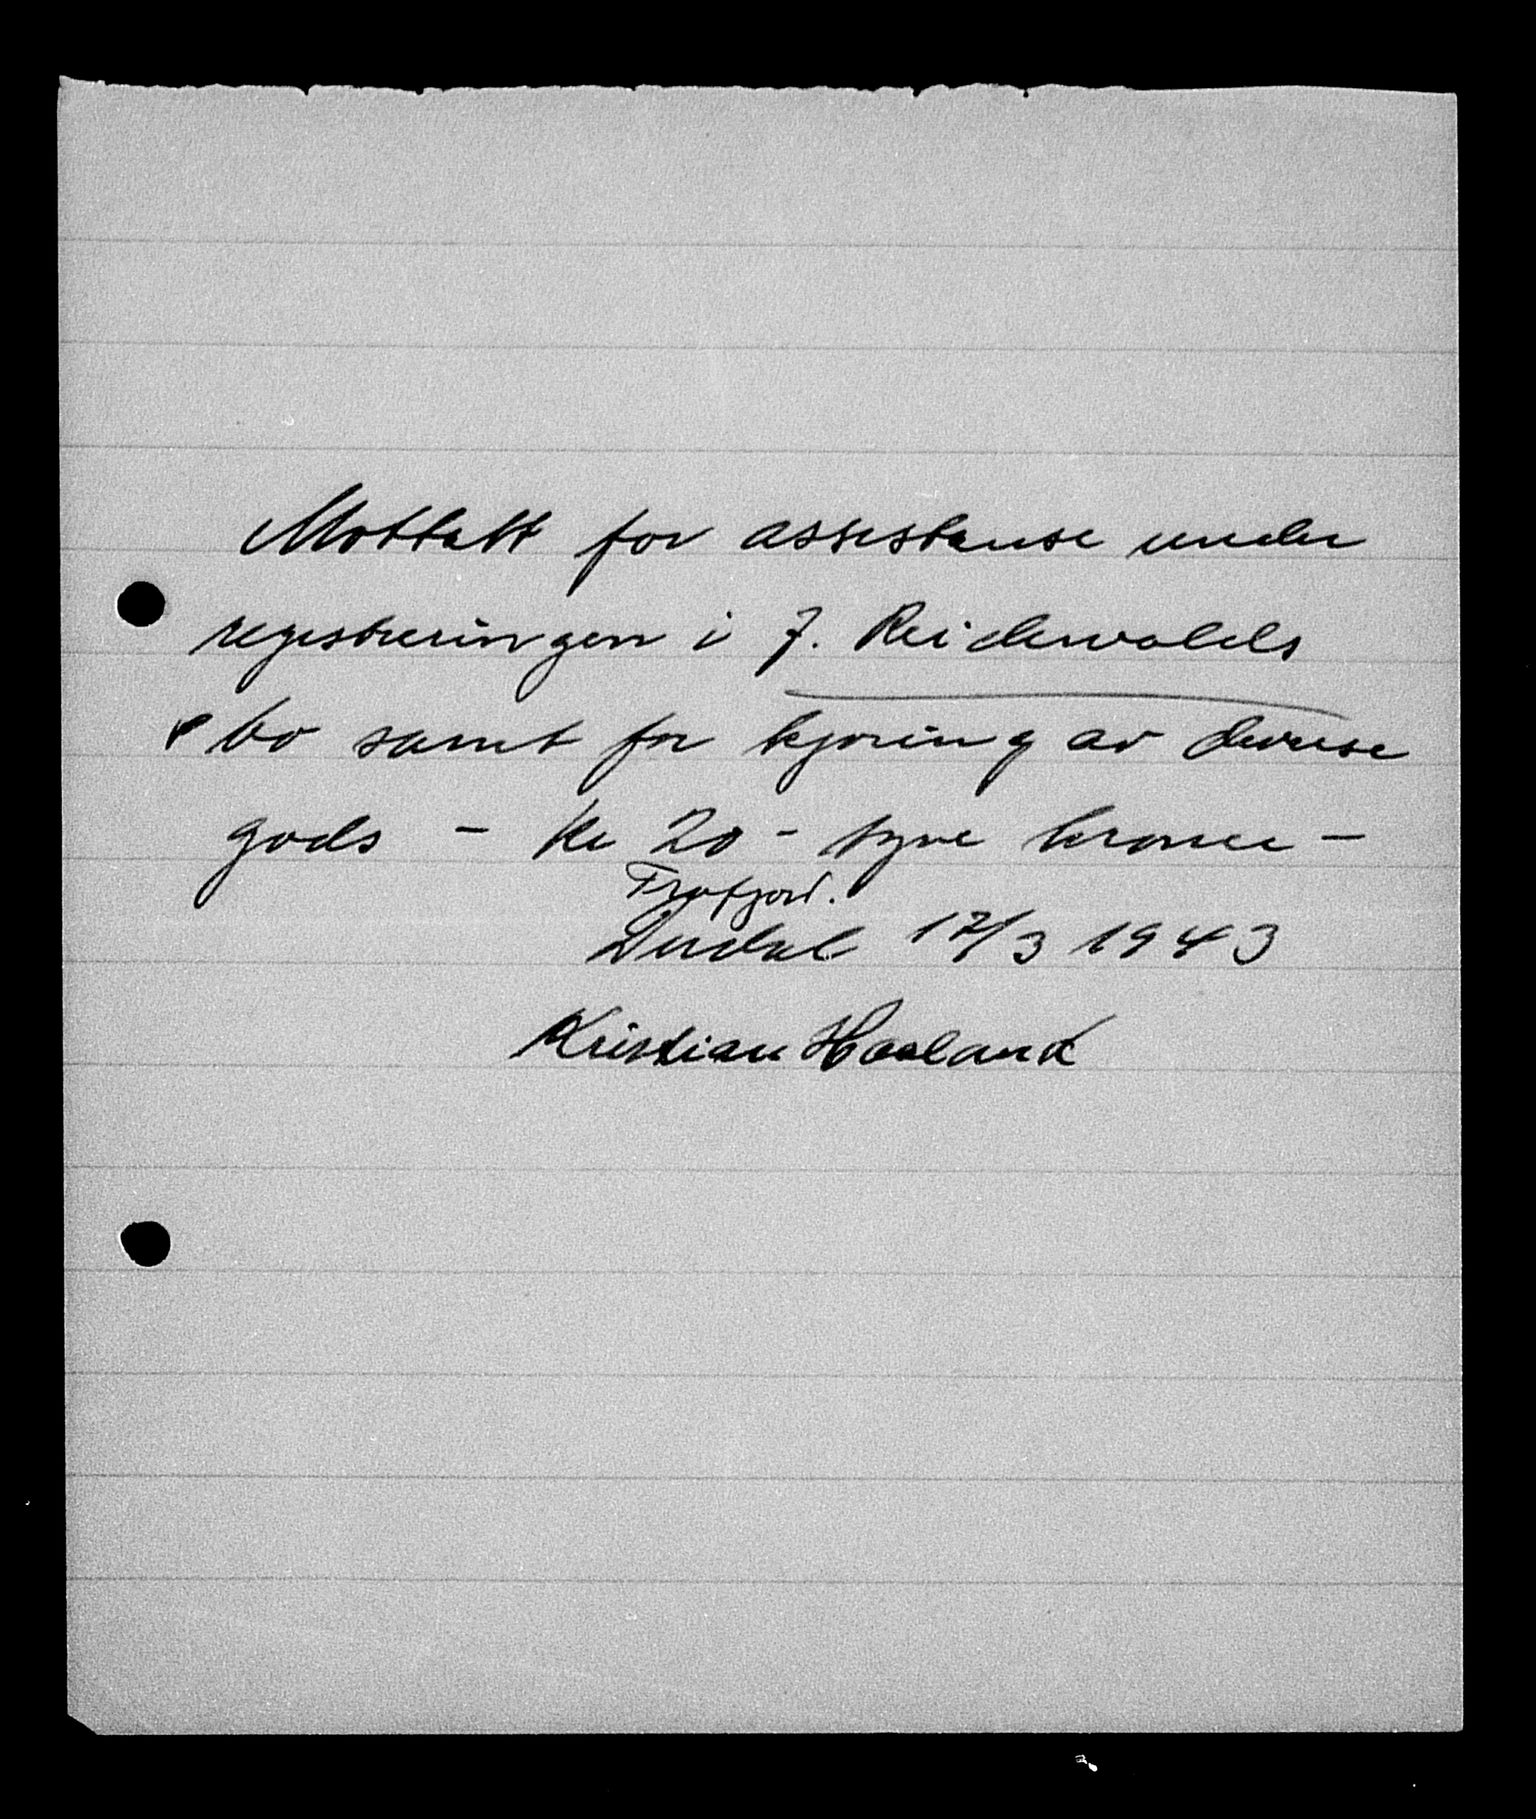 Mottatt for assistanse under
registreringen i J. Reidewalds
bo samt for kjøring av dennse
gods - Kr 20 - tyve kroner -
Frafjord.
Dirdal 17/3 1943
Kristian Haaland